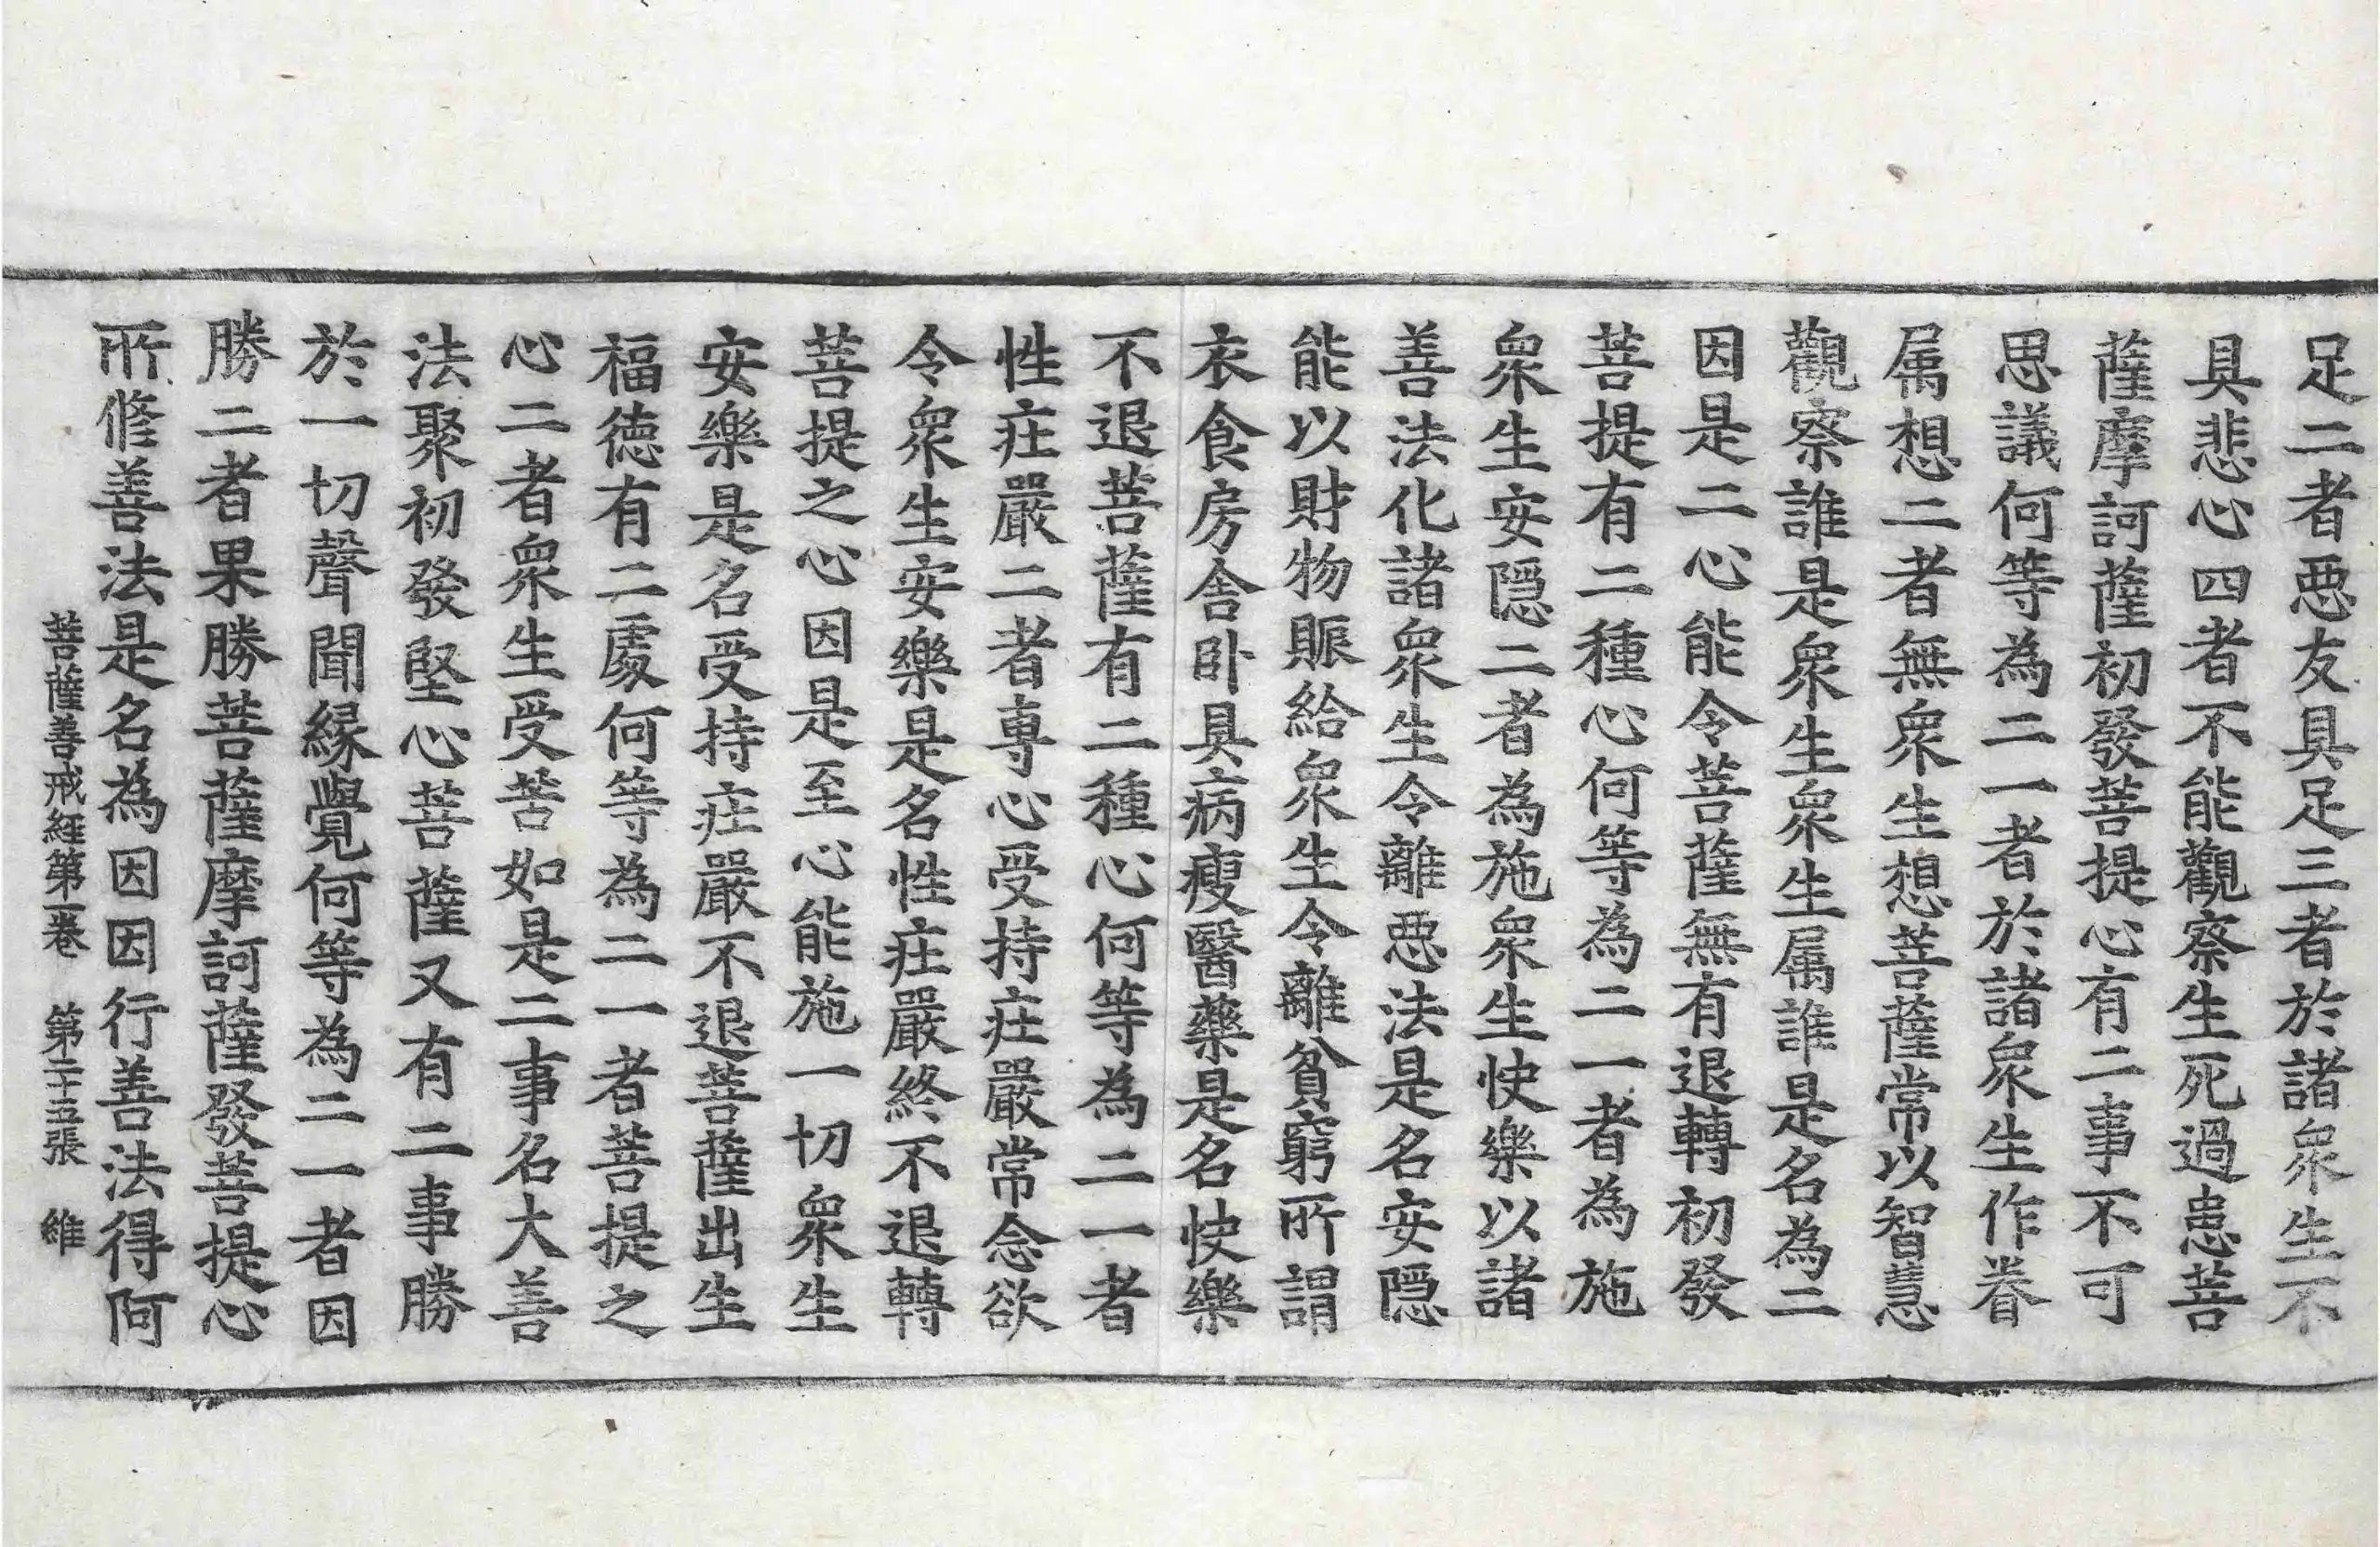 足二者惡友具足三者於諸衆生不
具悲心四者不能觀察生死過患菩
薩摩訶薩初發菩提心有二事不可
思議何等為二一者於諸衆生作眷
属想二者無衆生想菩薩常以智慧
觀察誰是衆生衆生属誰是名為二
因是二心能令菩薩無有退轉初發
菩提有二種心何等為二一者為施
衆生安隱二者為施衆生快樂以諸
善法化諸衆生令離惡法是名安隱
能以財物賑給衆生令離貧窮所謂
衣食房舍卧具病瘦醫藥是名快樂
不退菩薩有二種心何等為二一者
性莊嚴二者專心受持莊嚴常念欲
令衆生安樂是名性莊嚴終不退轉
菩提之心因是至心能施一切衆生
安樂是名受持莊嚴不退菩薩出生
福德有二處何等為二一者菩提之
心二者衆生受苦如是二事名大善
法聚初發堅心菩薩又有二事勝
於一切聲聞緣覺何等為二一者因
勝二者果勝菩薩摩訶薩發菩提心
所修善法是名為因因行善法得阿
菩薩善戒経第一卷　第二十五張　維